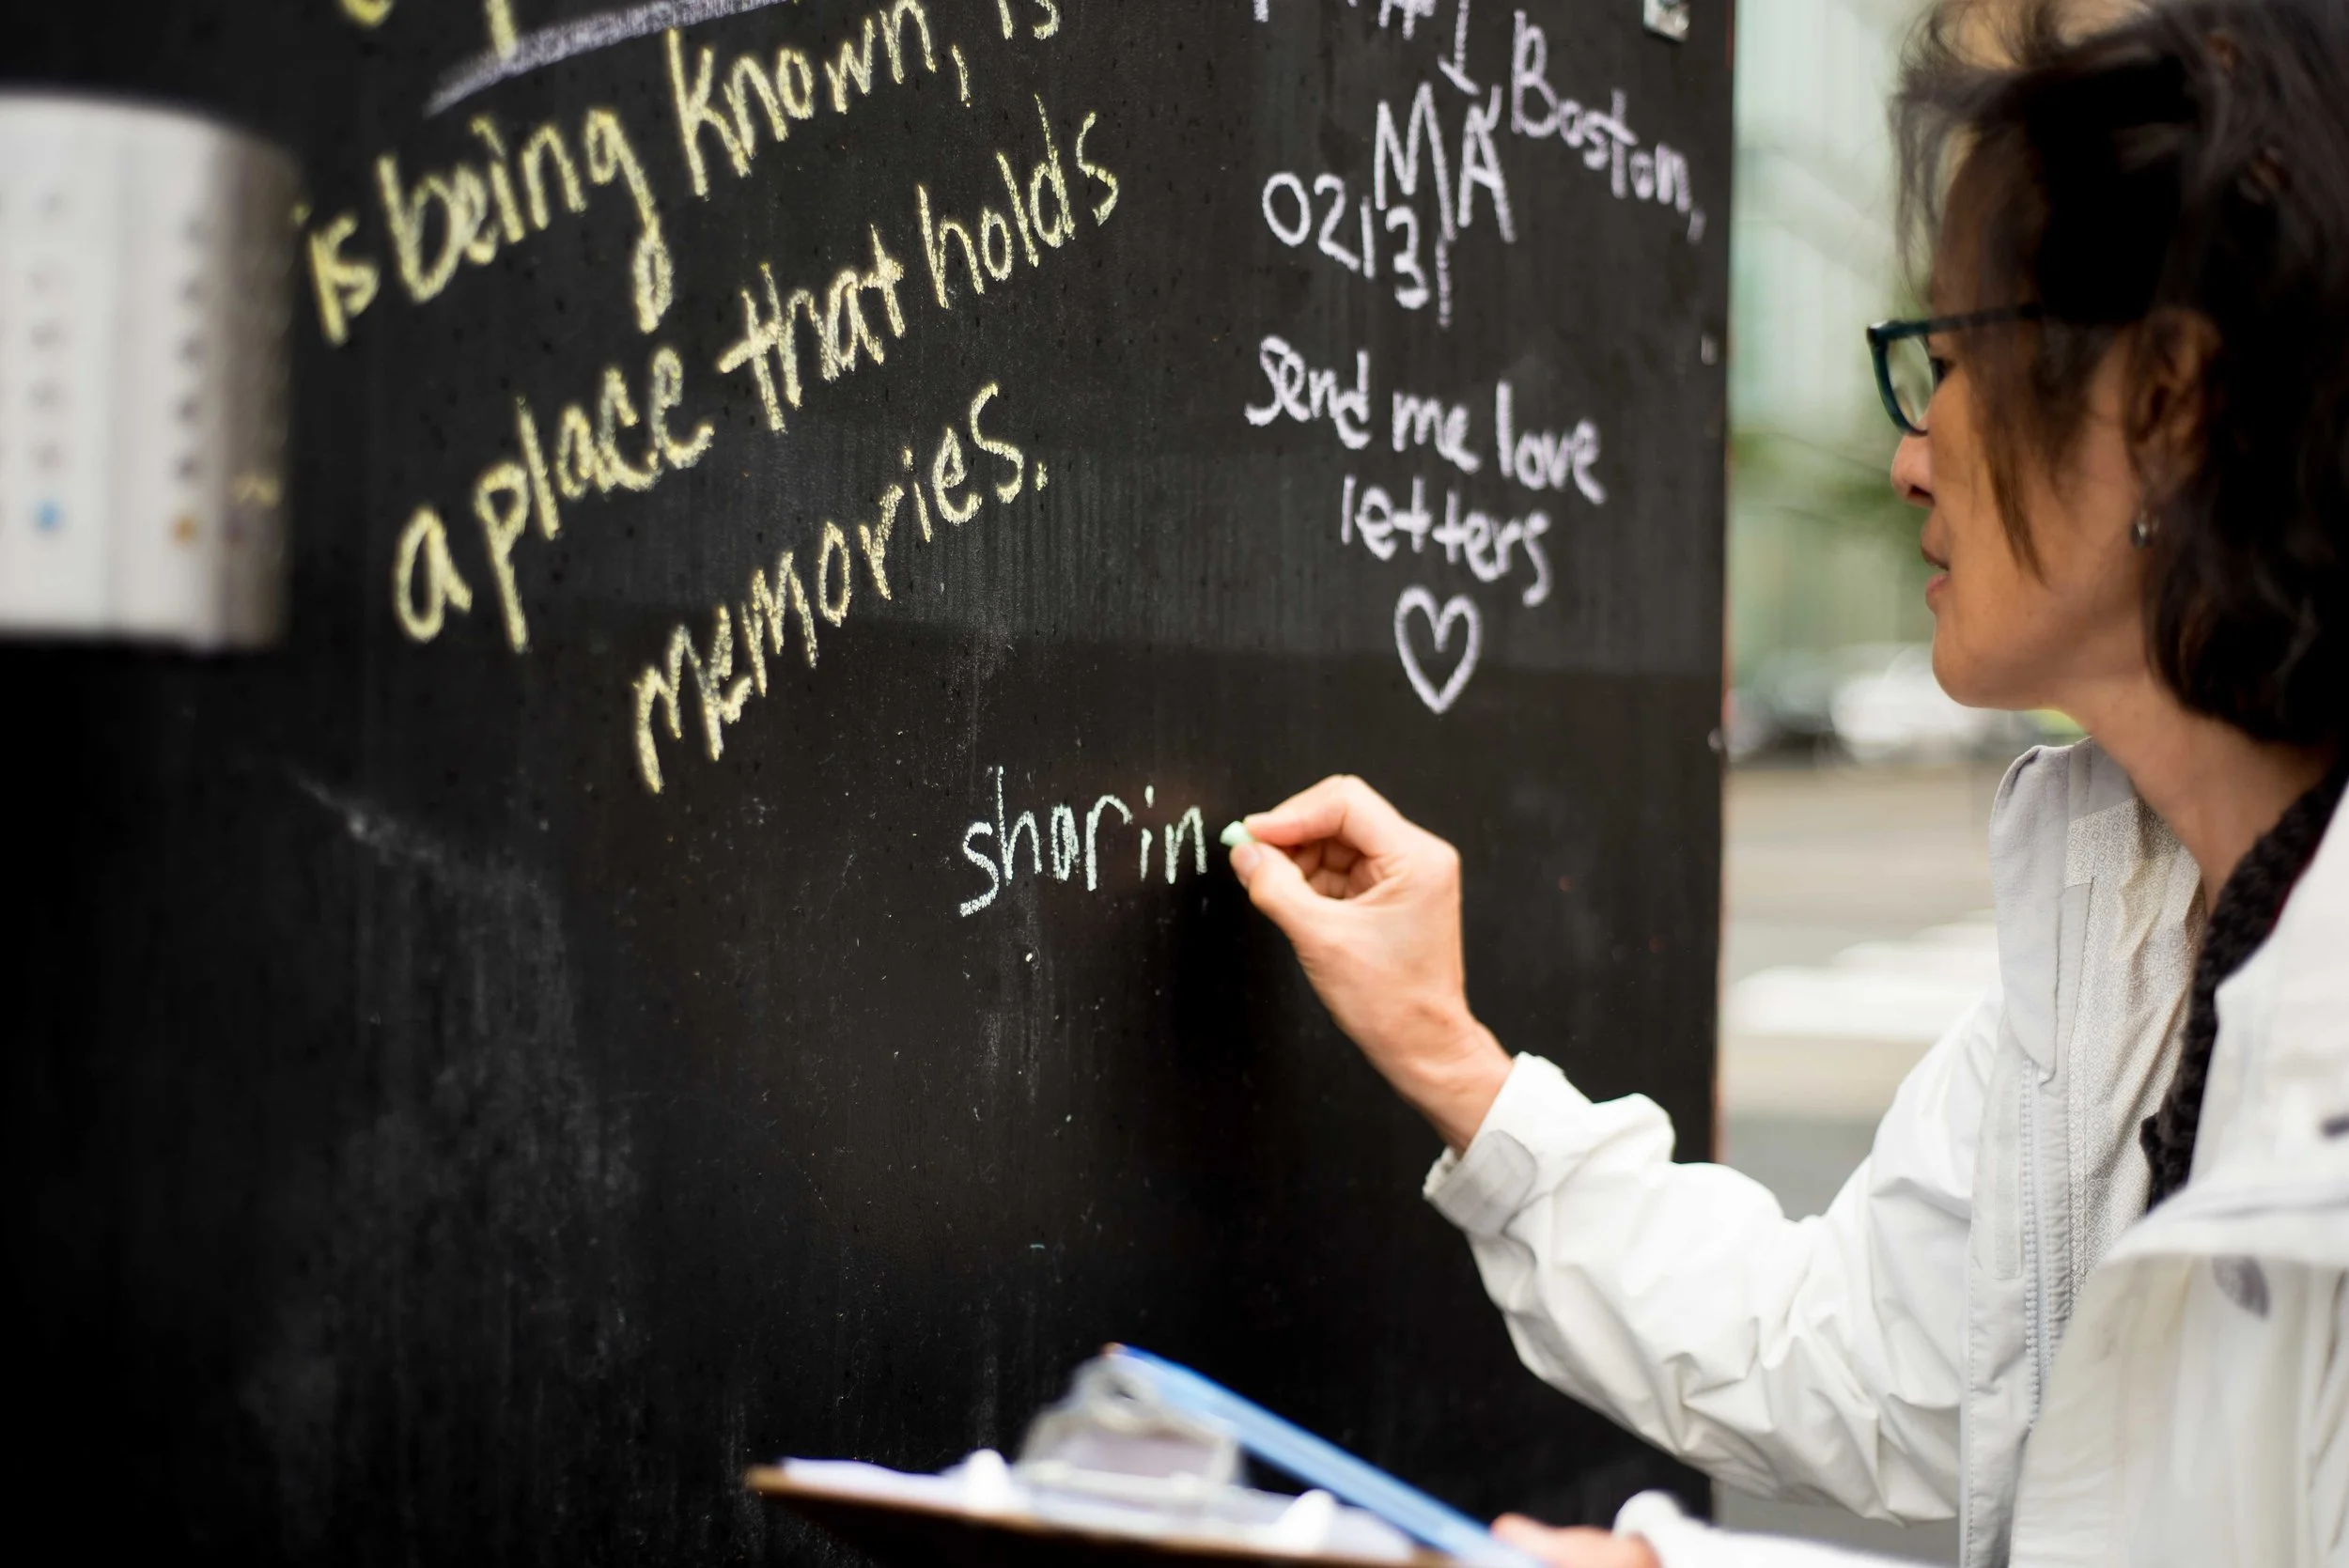 is being known, is
a place that holds
memories.
#1 Boston,
MA
02131
send me love
letters
sharin